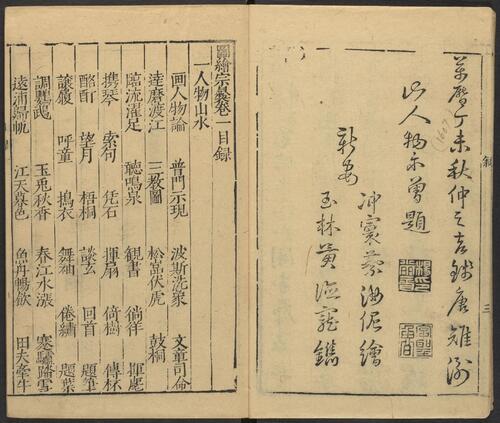 萬曆丁未秋仲之吉錢唐雉衡
山人楊尓曾題
(1607)
新安
冲寰蔡汝佐繪
玉林黃德寵鐫
叙
三
圖繪宗彝卷一目録
一人物山水
画人物論 普門示現 波斯洗象 文章司命
達磨渡江 三教圖 松窩伏虎 鼓桐
臨流濯足 聽鳴泉 觀書 徜徉 揮麈
携琴 索句 凭石 揮扇 倚樹 傳杯
酩酊 望月 梧桐 談玄 回首 題筆
躡屐 呼童 搗衣 舞袖 倦繡 題葉
調鸚鵡 玉兎秋香 春江水漲 蹇驢踏雪
遠浦歸帆 江天暮色 魚舟暢飲 田夫牽牛